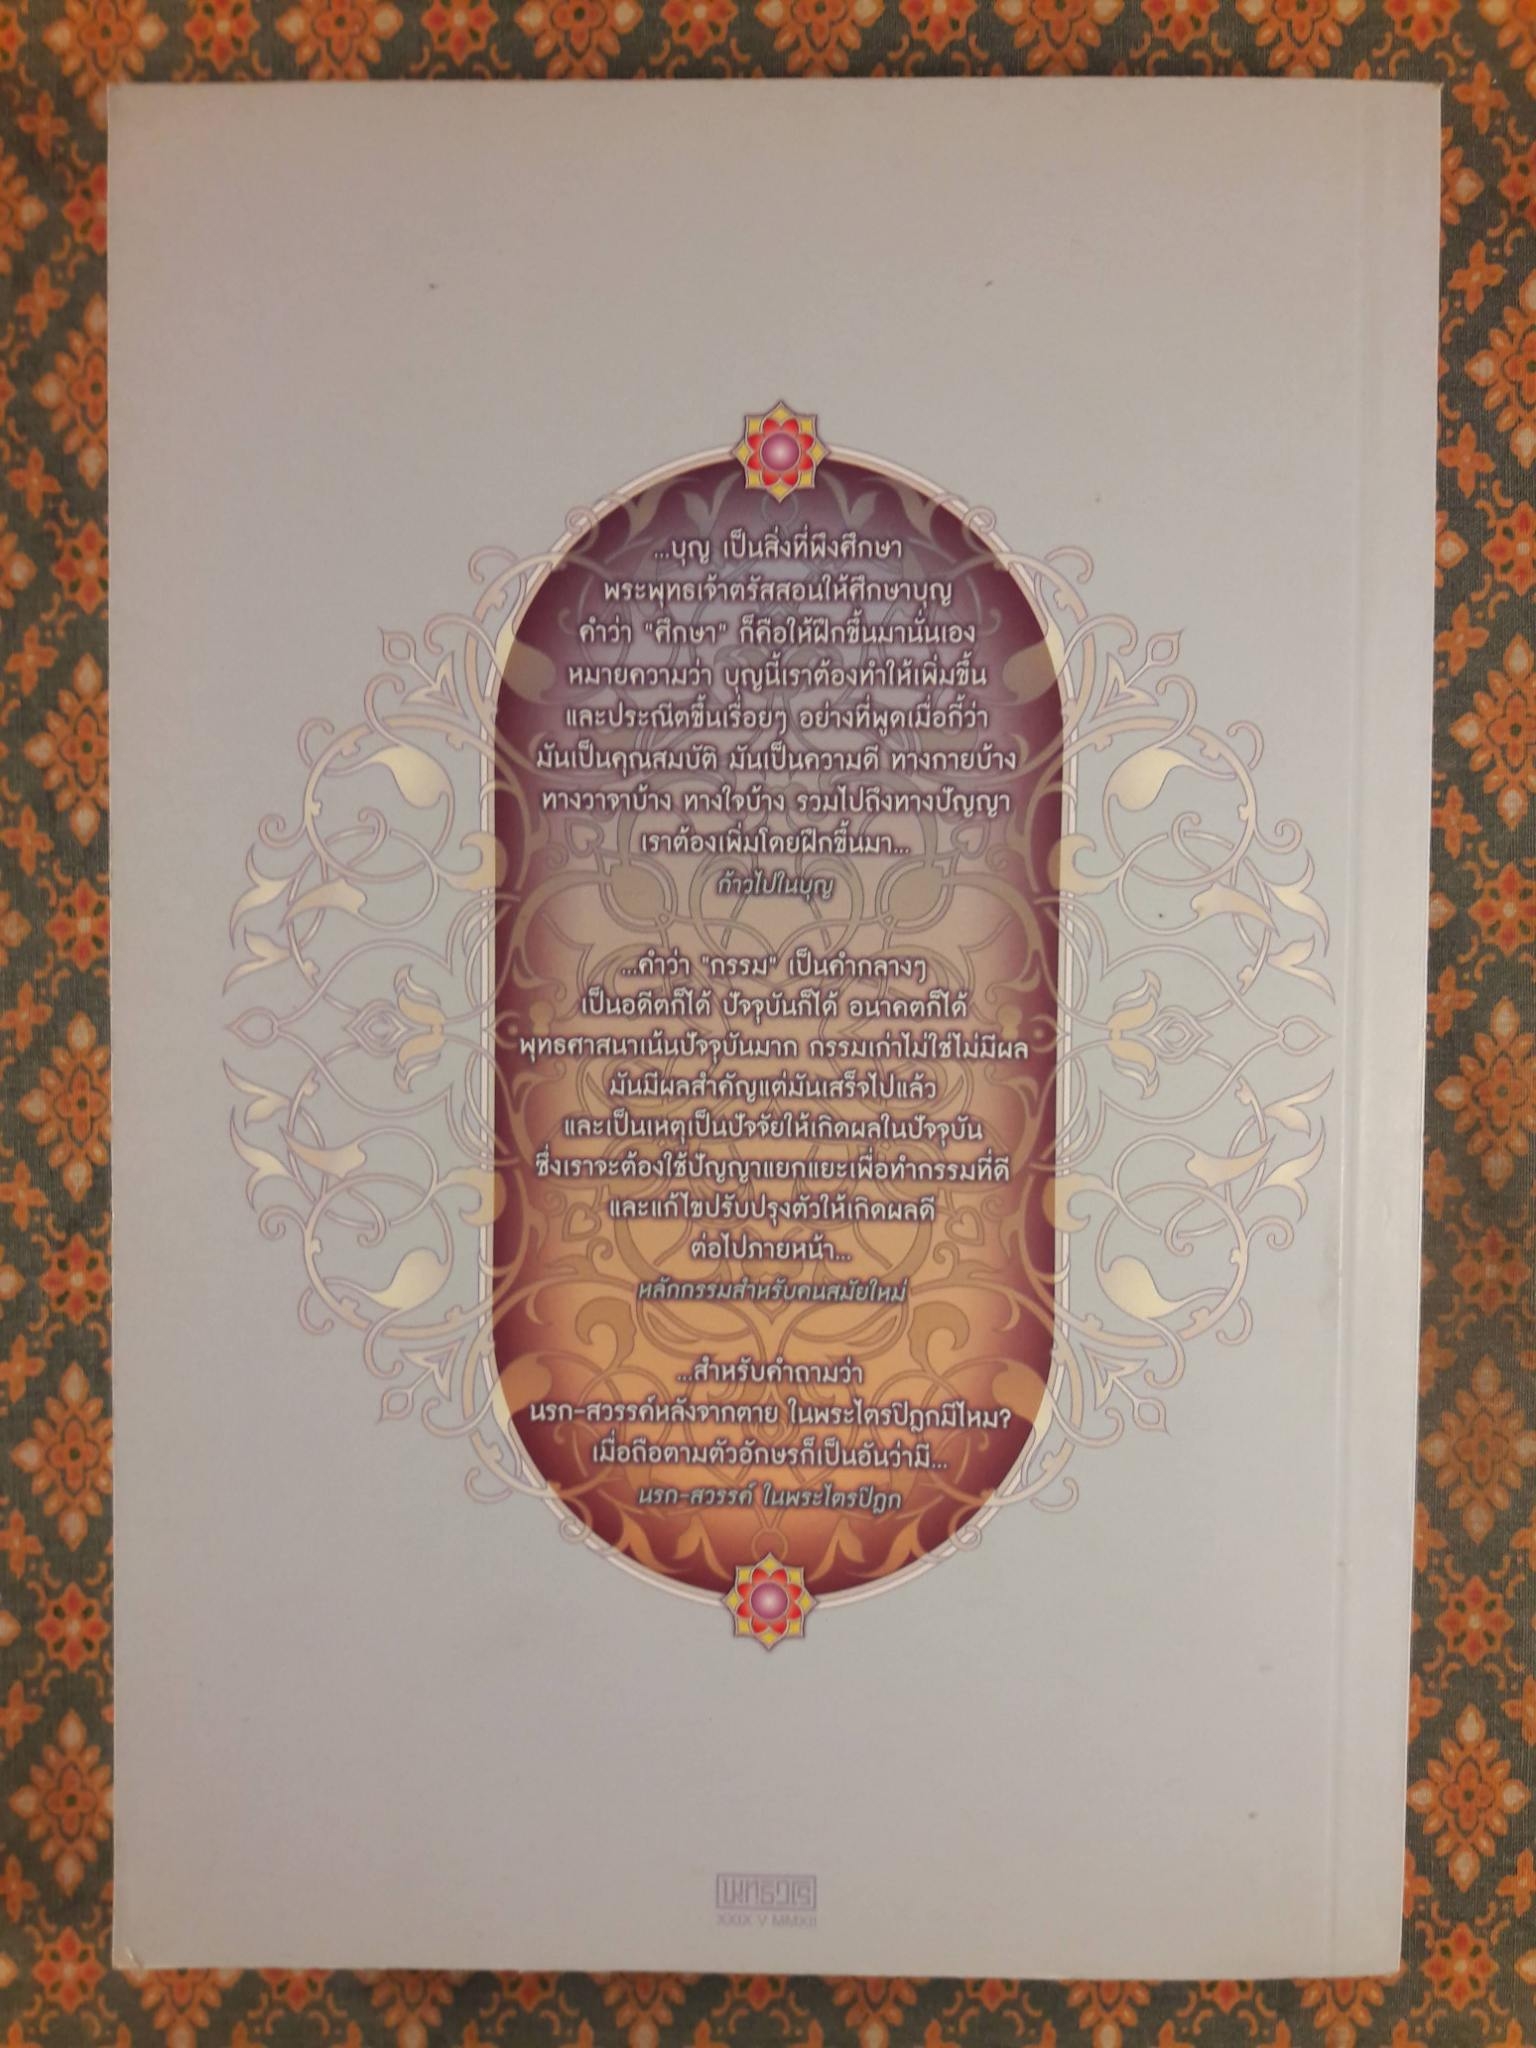 ...บุญ เป็นสิ่งที่พึงศึกษา
พระพุทธเจ้าตรัสสอนให้ศึกษาบุญ
คำว่า "ศึกษา" ก็คือให้ฝึกขึ้นมานั่นเอง
หมายความว่า บุญนี้เราต้องทำให้เพิ่มขึ้น
และประณีตขึ้นเรื่อยๆ อย่างที่พูดเมื่อกี้ว่า
มันเป็นคุณสมบัติ มันเป็นความดี ทางกายบ้าง
ทางวาจาบ้าง ทางใจบ้าง รวมไปถึงทางปัญญา
เราต้องเพิ่มโดยฝึกขึ้นมา...
ก้าวไปในบุญ
...คำว่า "กรรม" เป็นคำกลางๆ
เป็นอดีตก็ได้ ปัจจุบันก็ได้ อนาคตก็ได้
พุทธศาสนาเน้นปัจจุบันมาก กรรมเก่าไม่ใช่ไม่มีผล
มันมีผลสำคัญแต่มันเสร็จไปแล้ว
และเป็นเหตุเป็นปัจจัยให้เกิดผลในปัจจุบัน
ซึ่งเราจะต้องใช้ปัญญาแยกแยะเพื่อทำกรรมที่ดี
และแก้ไขปรับปรุงตัวให้เกิดผลดี
ต่อไปภายหน้า...
หลักกรรมสำหรับคนสมัยใหม่
...สำหรับคำถามว่า
นรก-สวรรค์หลังจากตาย ในพระไตรปิฎกมีไหม?
เมื่อถือตามตัวอักษรก็เป็นอันว่ามี...
นรก-สวรรค์ ในพระไตรปิฎก
XXIX V MMXII